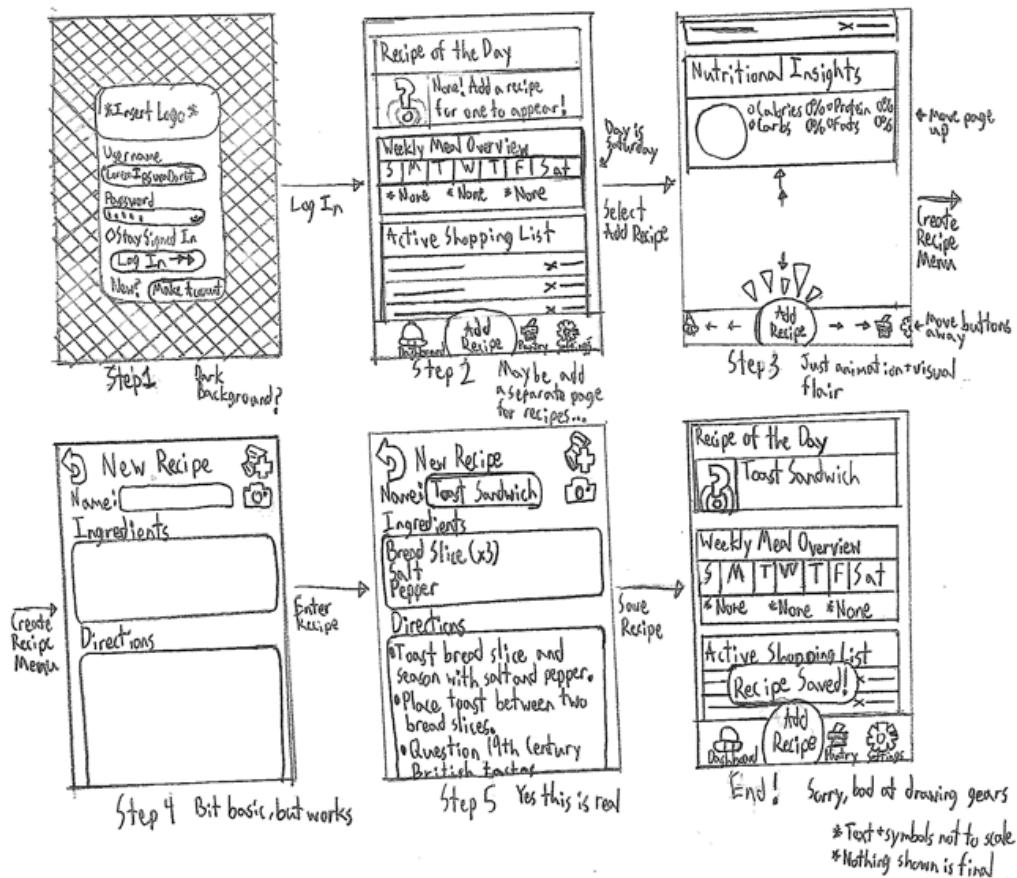 *Insert Logo*
Username
Password
Stay Signed In
Log In →→
New? Make Account
Step 1
Dark
Background?
Log In
Recipe of the Day
None! Add a recipe
for one to appear!
Weekly Meal Overview
S M T W T F Sat
*None *None *None
Active Shopping List
Dashboard
Add
Recipe
Pantry
Settings
Step 2
Maybe add
a separate page
for recipes...
Day is
Saturday
Select
Add Recipe
Nutritional Insights
Calories 0% Protein 0%
Carbs 0% Fats 0%
Move page
up
Add
Recipe
Move buttons
away
Step 3
Just animation+visual
flair
Create
Recipe
Menu
Create
Recipe
Menu
New Recipe
Name:
Ingredients
Directions
Step 4
Bit basic, but works
Enter
Recipe
New Recipe
Name: Toast Sandwich
Ingredients
Bread Slice (x3)
Salt
Pepper
Directions
•Toast bread slice and
season with salt and pepper.
•Place toast between two
bread slices.
•Question 19th Century
British tastes
Step 5
Yes this is real
Save
Recipe
Recipe of the Day
Toast Sandwich
Weekly Meal Overview
S M T W T F Sat
*None *None *None
Active Shopping List
Recipe Saved!
Dashboard
Add
Recipe
Pantry
Settings
End!
Sorry, bad at drawing gears
*Text+symbols not to scale
*Nothing shown is final